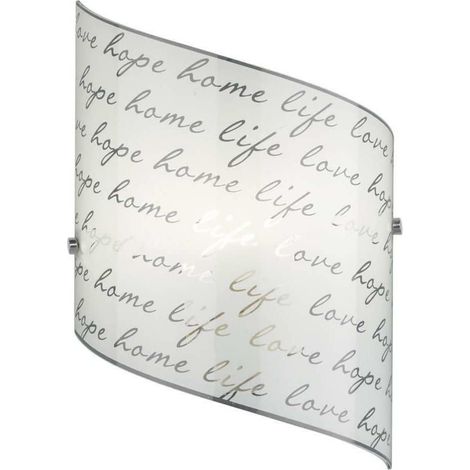 love hope home life love
hope home life love hope
love hope home life love hop
hope home life love hope
love hope home life love hope
hope home life love hope
hope home life love hope
hope home life love